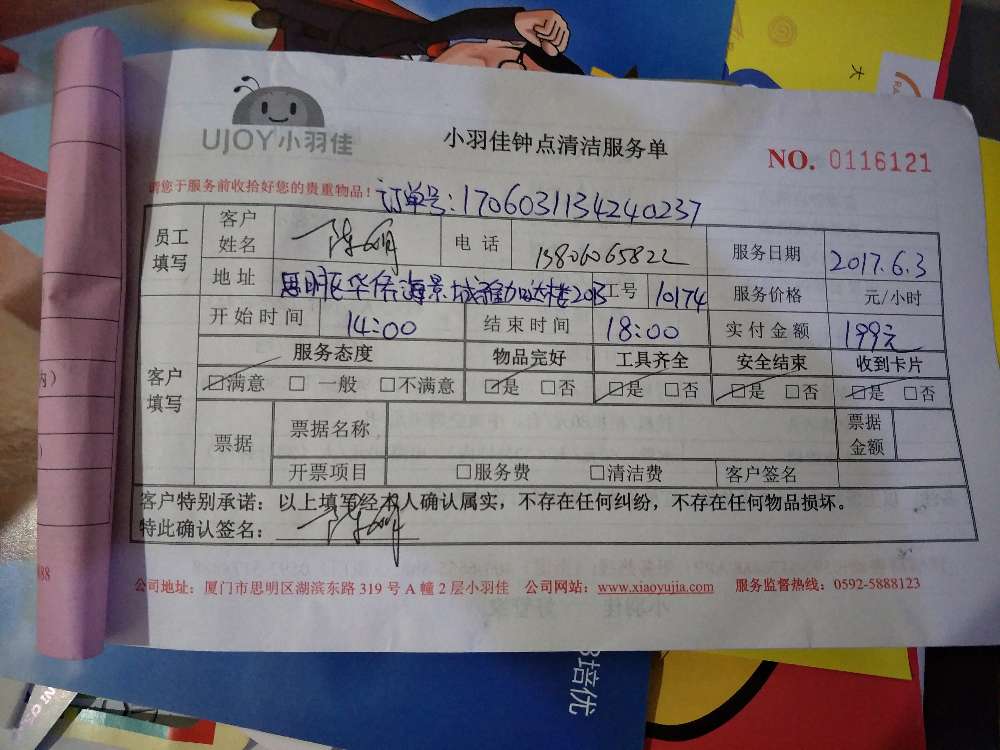 大
UJOY小羽佳
小羽佳钟点清洁服务单
NO. 0116121
请您于服务前收拾好您的贵重物品！
订单号:1706031134240237
员工填写
客户姓名
电话 13806065822
服务日期 2017.6.3
地址 思明区华侨海景城雅加达楼20B
工号 10174
服务价格 元/小时
开始时间 14:00
结束时间 18:00
实付金额 199元
客户填写
服务态度 物品完好 工具齐全 安全结束 收到卡片
□满意 □一般 □不满意 □是 □否 □是 □否 □是 □否 □是 □否
票据
票据名称
票据金额
开票项目 □服务费 □清洁费 客户签名
客户特别承诺：以上填写经本人确认属实，不存在任何纠纷，不存在任何物品损坏。
特此确认签名：
公司地址：厦门市思明区湖滨东路 319 号 A 幢 2 层小羽佳 公司网站：www.xiaoyujia.com 服务监督热线：0592-5888123
内）
培优